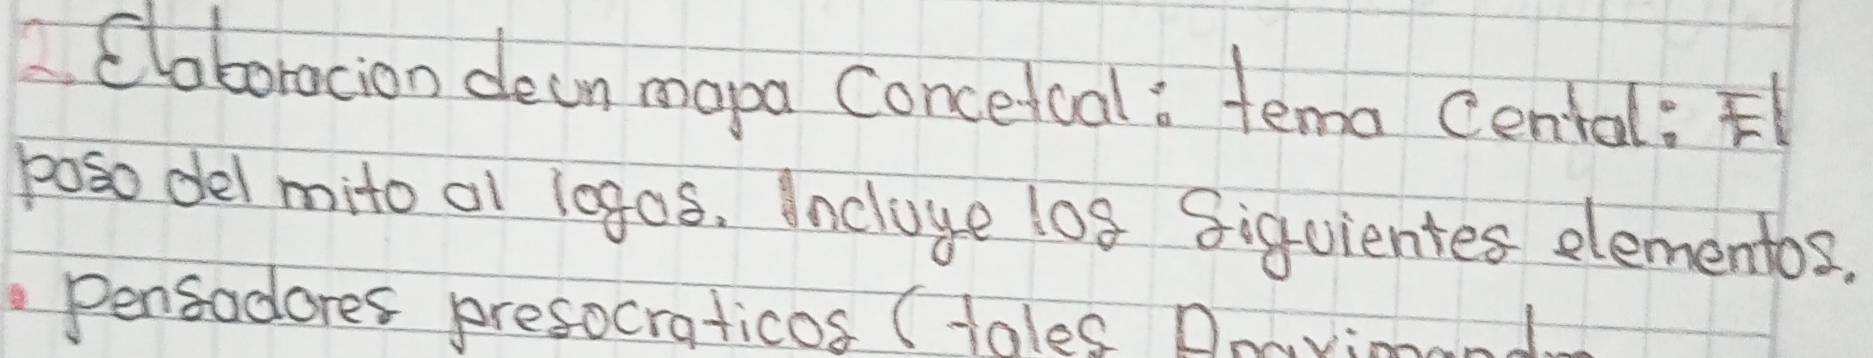 2. Elaboracion de un mapa Concetcal: tema Cental: El
paso del mito al logos. Incluye los Siguientes elementos.
• Pensadores presocraticos (tales Anaximand